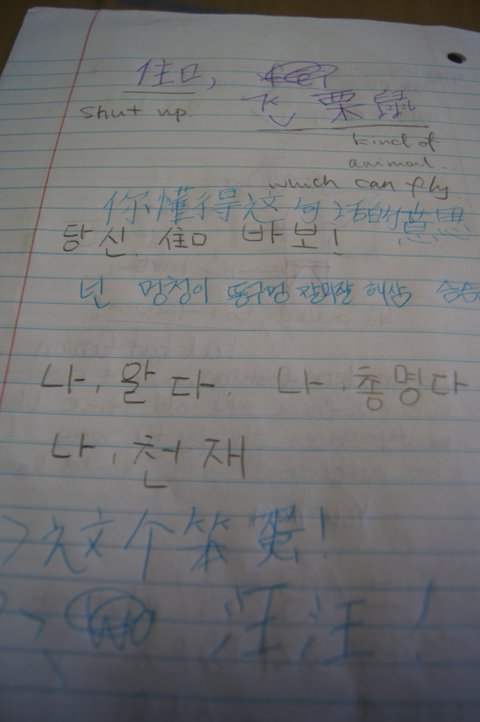 住口,
shut up
飞 栗鼠
kind of
animal...
which can fly
你懂得这句话的意思
당신, 住口 바보!
넌 멍청이 똥구멍
나, 왔다. 나, 총명다
나, 천재
这个笨蛋!
汪汪!